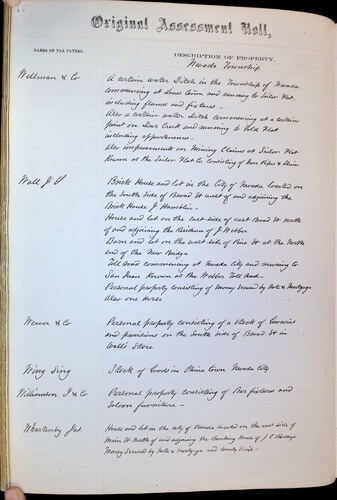 Original Assessment Roll,
NAMES OF TAX PAYERS.
DESCRIPTION OF PROPERTY.
Nevada Township
Wellman & Co
A certain water Ditch in the Township of Nevada
commencing at Canon and running to Sailor Flat
including flumes and fixtures -
Also a certain water Ditch commencing at a certain
point on Deer Creek and running to Gold Flat
including appurtenances -
Also improvement on Mining Claims at Sailor Flat
Known as the Sailor Flat Co consisting of Iron Pipes &
Wall J S
Brick House and lot in the City of Nevada located on
the South side of Broad St west of and adjoining the
Brick House J Hamblin
House and lot on the east side of east Broad St north
of and adjoining the Residence of J Webber
Barn and lot on the west side of Pine St at the North
end of the New Bridge
Toll Road commencing at Nevada City and running to
San Juan Known as the Webber Toll Road -
Personal property consisting of money secured by note & mortgage
Also one Horse
& Co
Personal property consisting of a Stock of Groceries
and provisions on the South side of Broad St in
Walls Store
Wing Sing
Stock of Goods in China town Nevada City
Williamson & Co
Personal property consisting of Bar fixtures and
Saloon furniture -
House and lot in the City of Nevada located on the east side of
Main St North of and adjoining the Banking House of J
Money Secured by note & mortgage and